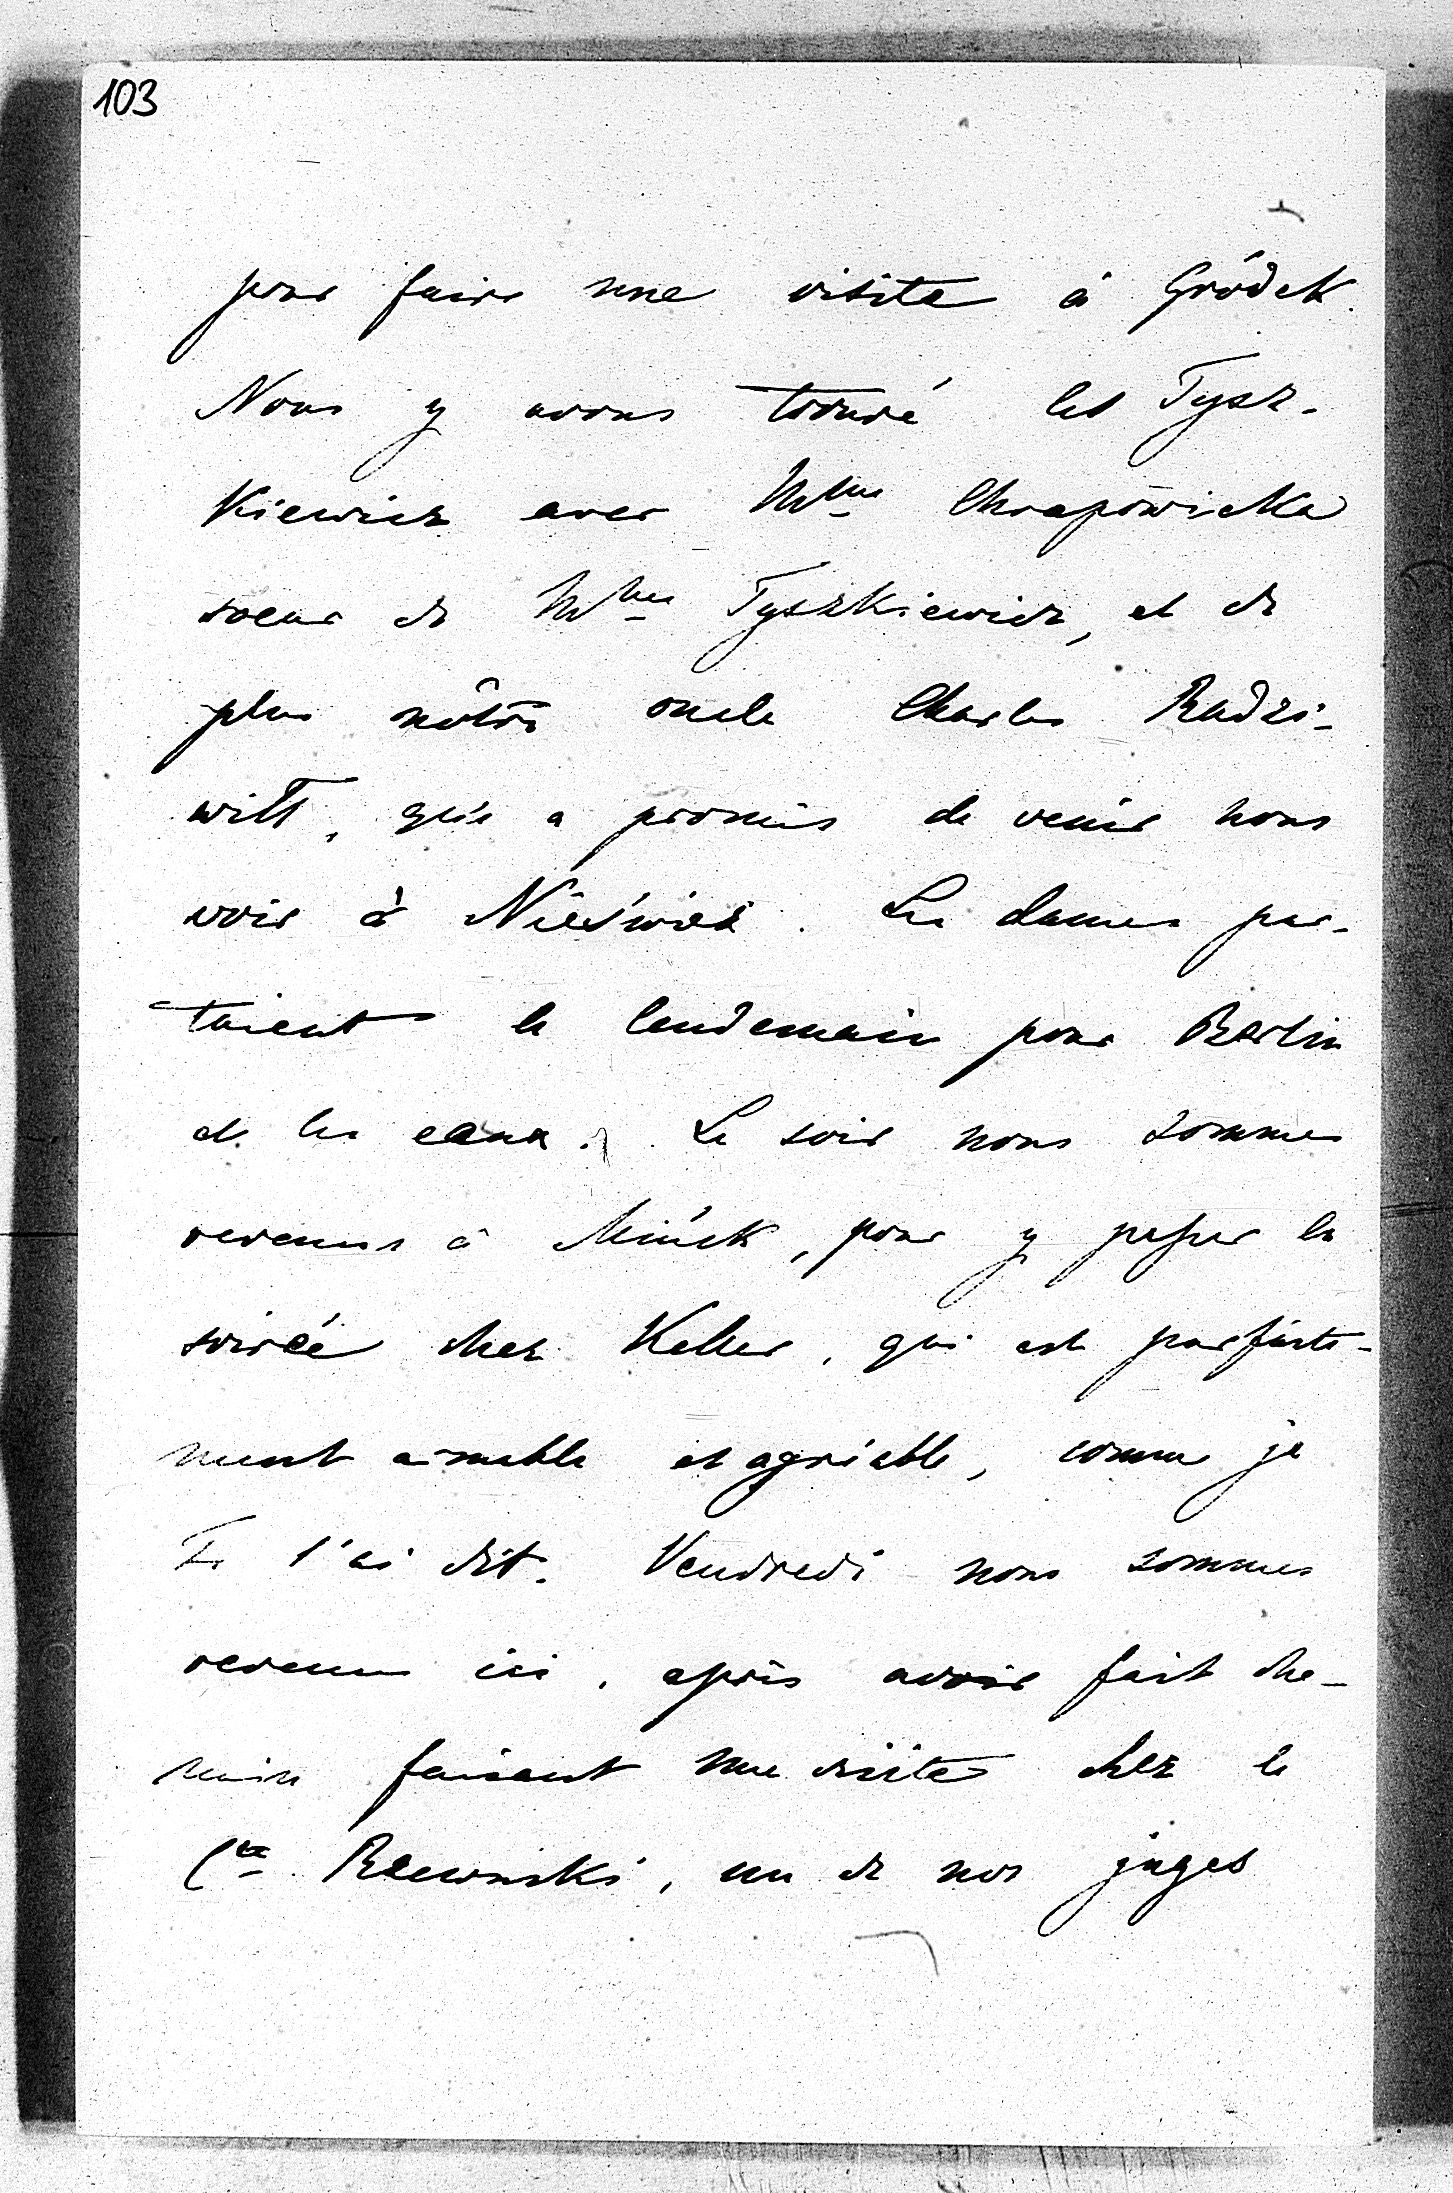 103
pour faire une visite à Gródek.
Nous y avons trouvé les Tysz-
kiewicz avec Mme Chrapówicka
soeur de Mme Tyszkiewicz, et de
plus nôtre oncle Charles Radzi-
wiłł, qui a promis de venir nous
voir à Nieśwież. Les dames par-
taient le lendemain pour Berlin
et les eaux. Le soir nous sommes
revenus à Mińsk, pour y passer la
soirée chez Keller, qui est parfaite-
ment aimable et agréable, comme je
Te l'ai dit. Vendredi nous sommes
revenus ici, après avoir fait che-
min faisant une visite chez le
Cte Rzewuski, un de nos juges